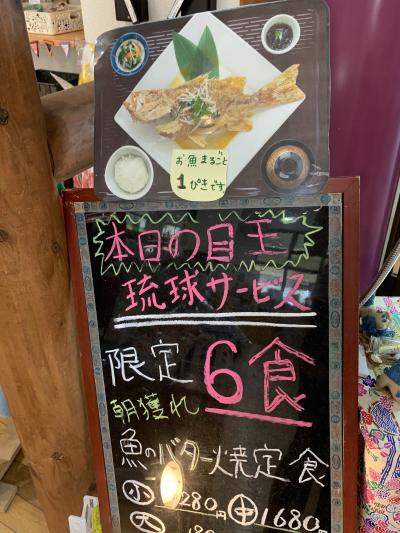 お魚まるごと
1ぴきです
本日の目玉
琉球サービス
限定6食
朝獲れ
魚のバター焼定食
小 1280円 中 1680円
大